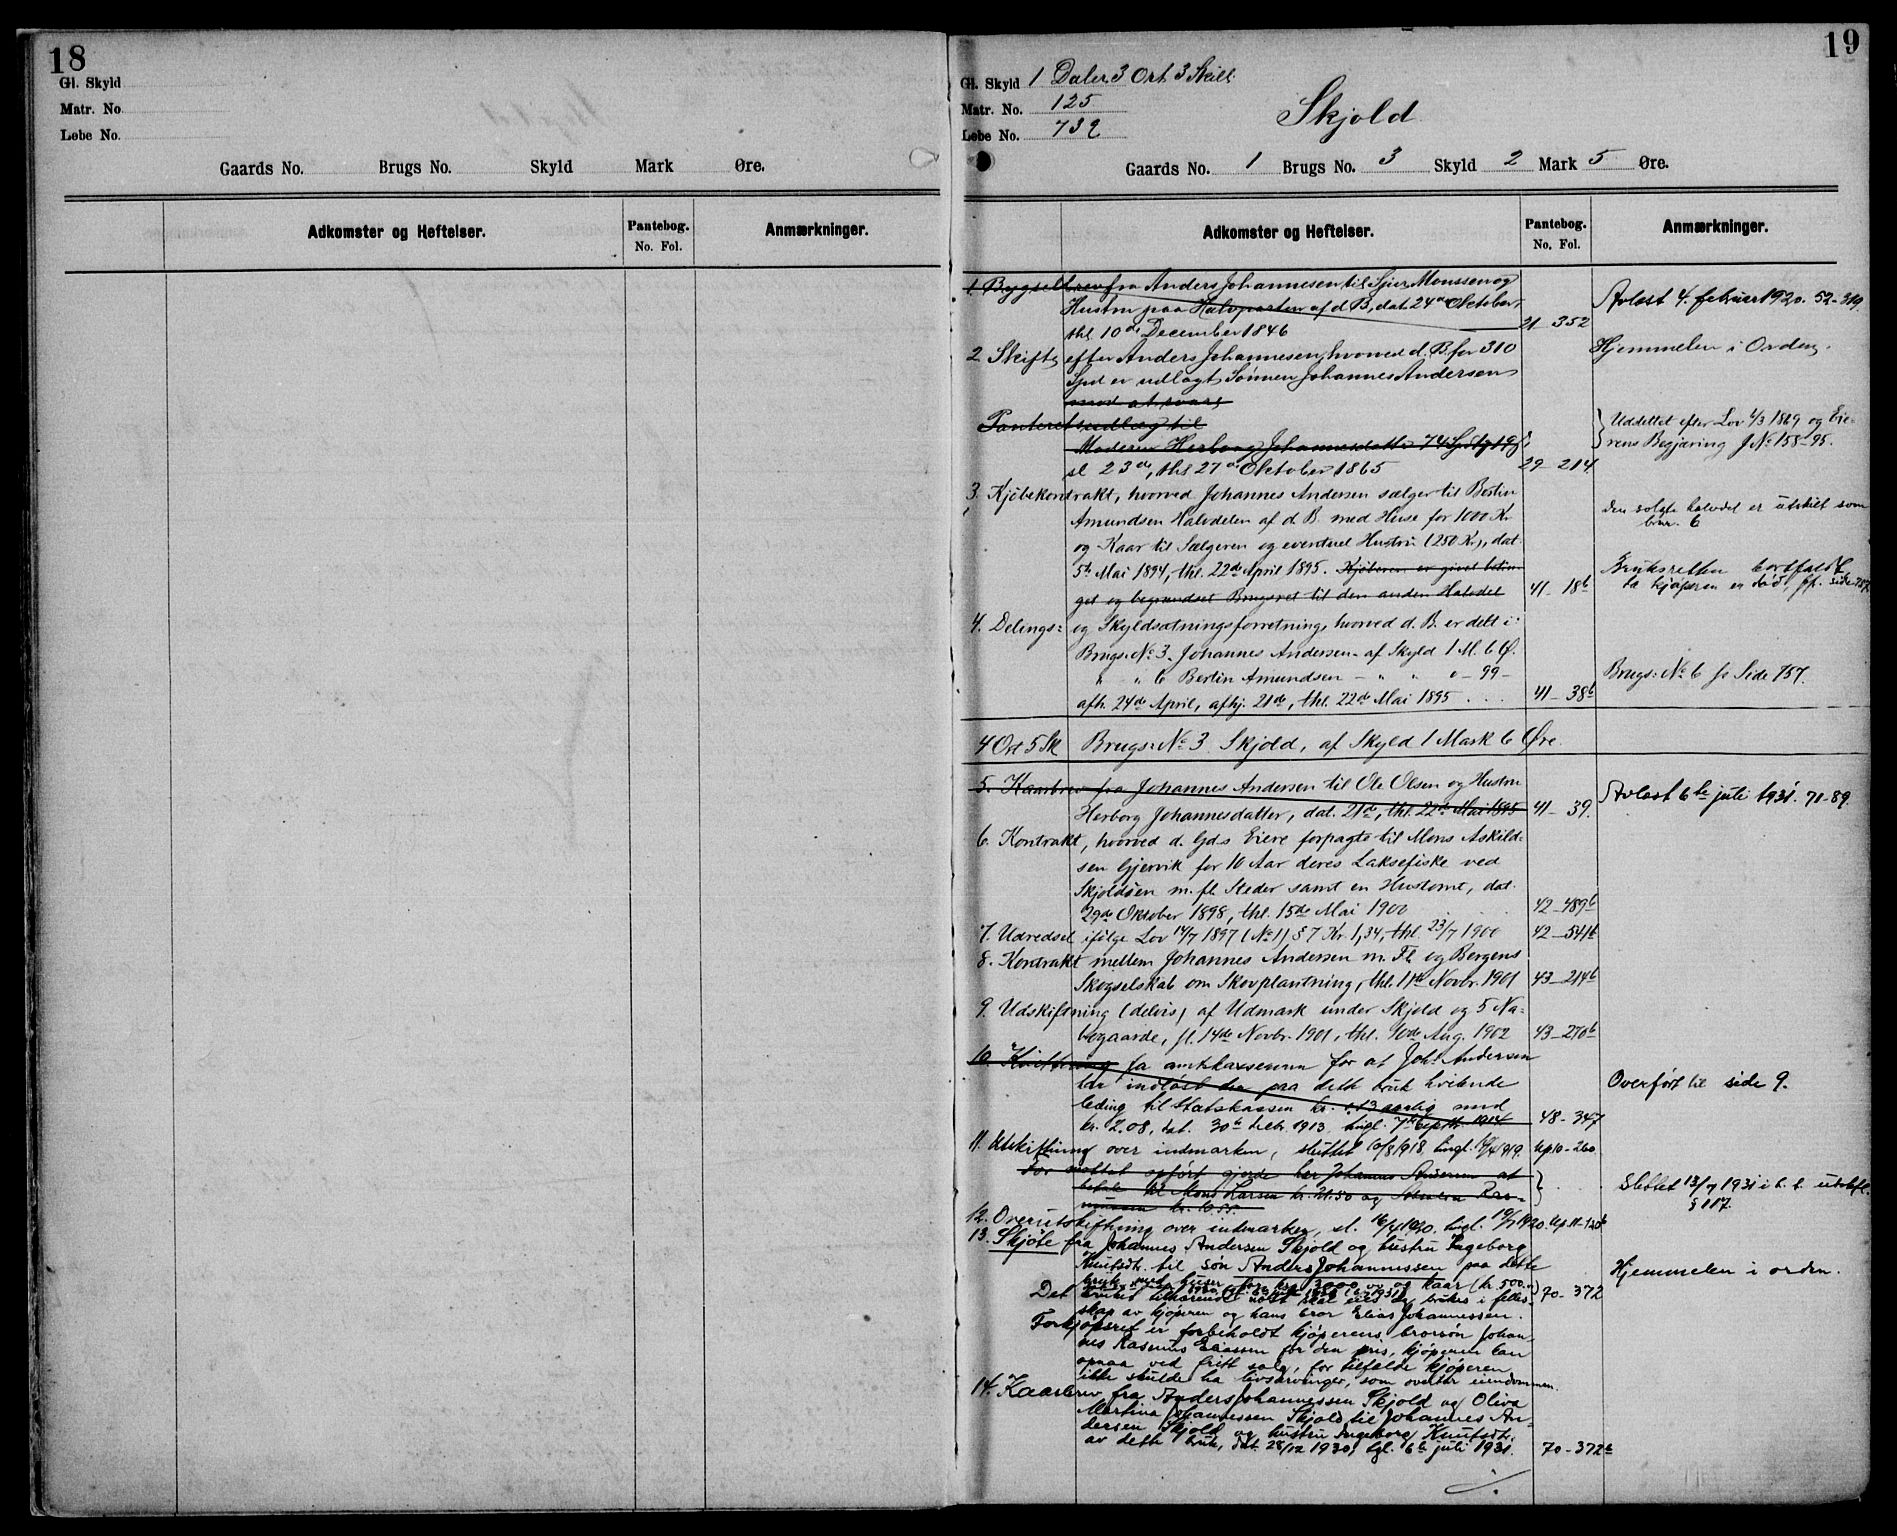 18
Gl. Skyld
Matr. No
Løbe No.
Gaards No. Brugs No. Skyld Mark Øre.
Adkomster og Heftelser. Pantebog. No. Fol. Anmærkninger.
19
Gl. Skyld 1 Daler 3 Ort 3 Skill.
Matr. No. 125
Løbe No. 739
Skjold
Gaards No. 1 Brugs No. 3 Skyld 2 Mark 5 Øre.
Adkomster og Heftelser. Pantebog. No. Fol. Anmærkninger.
1. Bygselbrev fra Anders Johannesen til Sjur Monssen og
Hustru paa Halvparten af d. B, dat. 24de Oktober, Avlest 4. februar 1920. 52-319.
thl. 10de December 1846 21-352
2. Skifte efter Anders Johannesen, hvorved d. B. for 310 Hjemmelen i Orden.
Spd er udlagt Sønnen Johannes Andersen
mod at svare
Panteretsudlæg til Uddettet efter Lov 6/3 1869 og Eie-
Moderen Herborg Johannesdatter 74 Spd rens Begjæring J No 158-95.
sl 23de, thl 27de Oktober 1865 29-214
3. Kjøbekontrakt, hvorved Johannes Andersen sælger til Bertin
Amundsen Halvdelen af d. B. med Huse for 1000 Kr. den solgte halvdel er utskilt som
og Kaar til Sælgeren og eventuel Hustru (250 Kr.), dat. bnr. 6
5te Mai 1894, thl. 22de April 1895. Kjøberen er givet betin- Bruksretten bortfaldt
get og begrændset Brugsret til den anden Halvdel 41-18b da kjøperen er død, jfr. side 757.
4. Delings- og Skyldsætningsforretning, hvorved d. B. er delt i:
Brugs-No 3. Johannes Andersen - af Skyld 1 M. 6 Ø.
" " 6 Bertin Amundsen - " " 0-99- Brugs-No 6 fr Side 757.
afh. 24de April, afhj. 21de, thl. 22de Mai 1895 41-38b
4 Ort 5 Sk Brugs-No 3 Skjold, af Skyld 1 Mark 6 Øre.
5. Kaarbrev fra Johannes Andersen til Ole Olsen og Hustru Avlest 6te juli 1931. 70-89.
Herborg Johannesdatter, dat. 21de, thl. 22de Mai 1895 41-39.
6. Kontrakt, hvorved d. Gds Eiere forpagte til Mons Askild-
sen Gjervik for 10 Aar deres Laksefiske ved
Skjoldøen m. fl. Steder samt en Hustomt, dat.
29de Oktober 1898, thl. 15de Mai 1900 42-489b
7. Udredsel ifølge Lov 14/7 1897 (No 1) § 7 Kr. 1,34, thl. 23/7 1900 42-541b
8. Kontrakt mellem Johannes Andersen m. Fl. og Bergens
Skogselskab om Skovplantning, thl. 11te Novbr. 1901 43-214b
9. Udskiftning (delvis) af Udmark under Skjold og 5 Na-
bogaarde, sl. 14de Novbr. 1901, thl. 10de Aug. 1902 43-270b
10. Kvittering fra amtskassereren for at Joh. Andersen
har indløst den paa dette bruk hvilende Overført til side 9.
leding til statskassen kr. 0.13 aarlig med
kr. 2.08, dat. 30te decbr. 1913, tingl. 7de septbr. 1914 48-347
11. Utskiftning over indmarken, sluttet 10/8 1918, tingl. 1919. Up 10-260
For mottat opført gjerde har Johannes Andersen at
betale til Mons Larsen kr. 21.50 og Ras- Slettet 13/7 1931 i h. t. utskfl.
mussen kr. § 117.
12. Overutskiftning over indmarken, sl. 16/4 1920. tingl. 19/7 1920. Up. 11-120b
13. Skjøte fra Johannes Andersen Skjold og hustru Ingeborg
Knutsdtr. til søn Anders Johannessen paa dette Hjemmelen i orden.
bruk med huser for kr. 3000.00 og kaar (kr. 500.-) 70-372
Det bruket tilhørende nøst skal eies og brukes i felles-
skap av kjøperen og hans bror Elias Johannessen.
Forkjøpsret er forbeholdt kjøperens brorsøn Johan-
nes Rasmus Eliassen for den pris, kjøperen kan
opnaa ved fritt salg, for tilfælde kjøperen
ikke skulde ha livsarvinger, som overtar eiendommen.
14. Kaarbrev fra Anders Johannessen Skjold og Oliva
Martina Johannessen Skjold til Johannes An-
dersen Skjold og hustru Ingeborg Knutsdtr.
av dette bruk, dat. 28/12 1930, tgl. 6te juli 1931. 70-372b